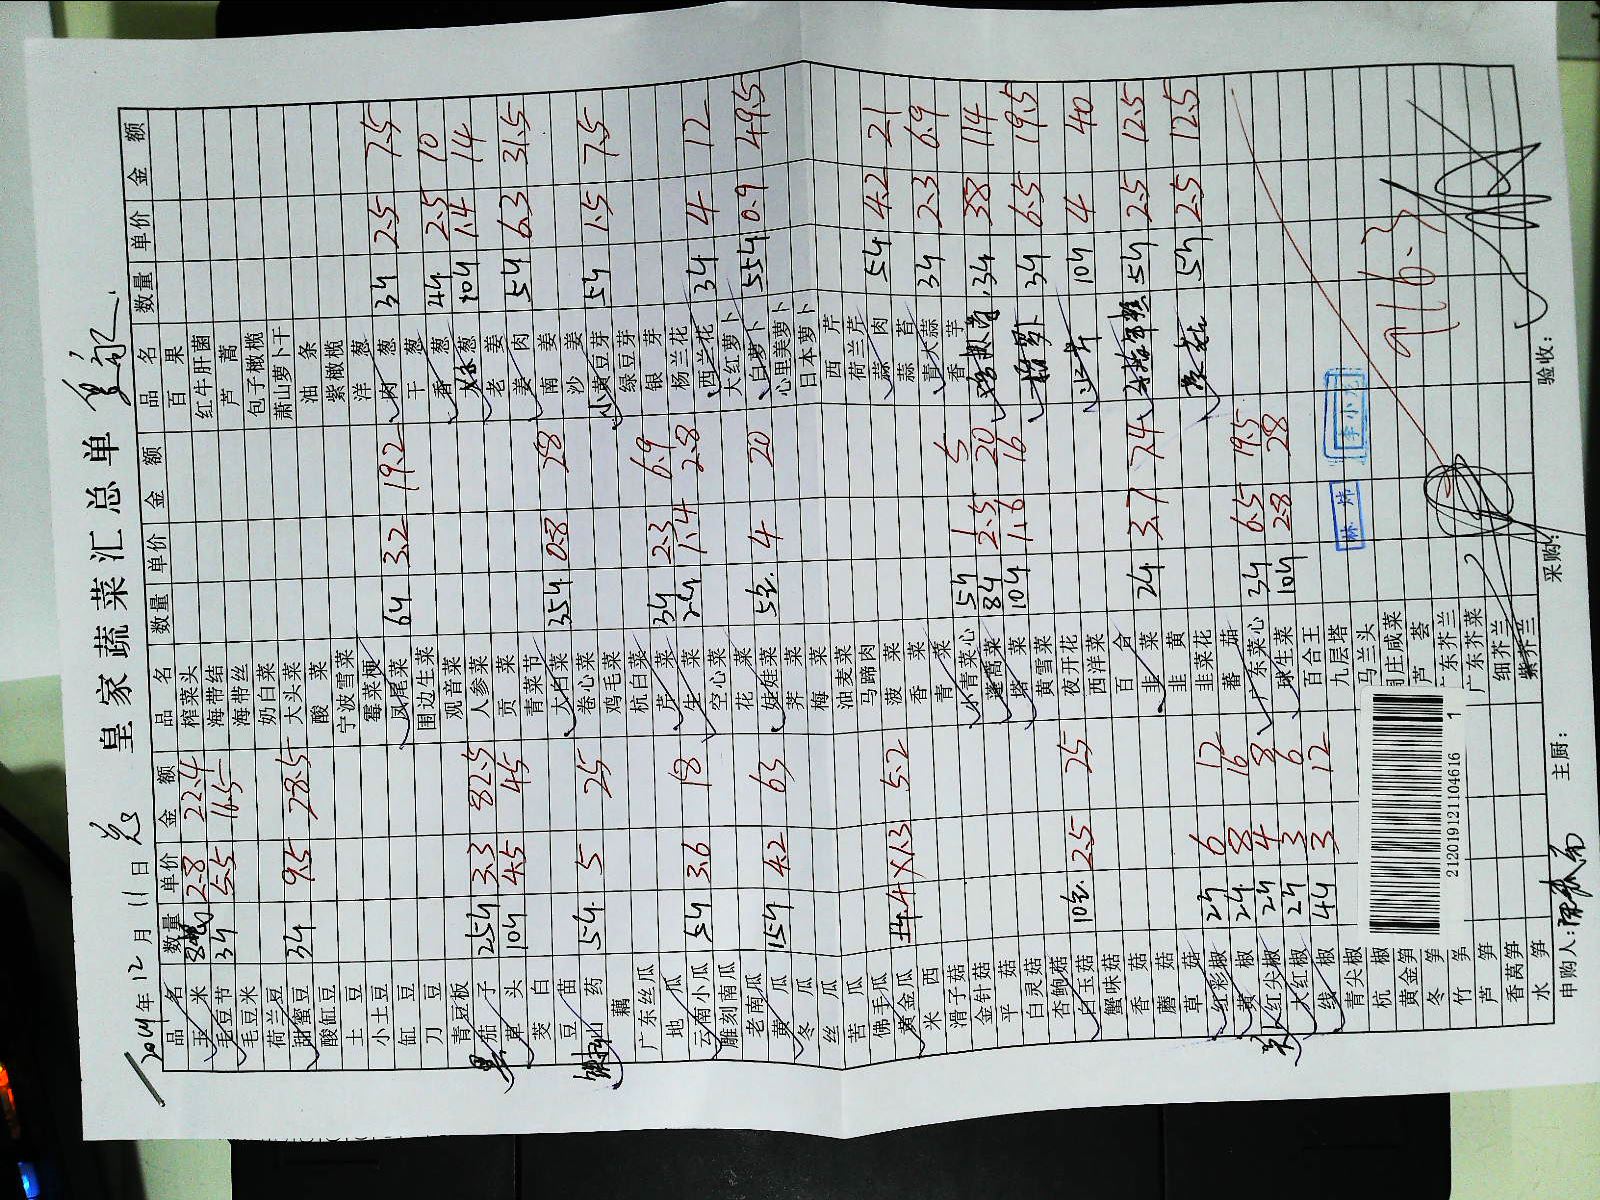 皇家蔬菜汇总单
2014年12月11日
品名 数量 单价 金额 品名 数量 单价 金额 品名 数量 单价 金额
玉米 2.8 22.4 榨菜头 百果
毛豆节 3斤 5.5 16.5 海带结 红牛肝菌
毛豆米 海带丝 芦蒿
荷兰豆 奶白菜 包子橄榄
甜蜜豆 3斤 9.5 28.5 大头菜 萧山萝卜干
酸缸豆 酸菜 油条
土豆 宁波雪菜 紫橄榄
小土豆 霉菜梗 洋葱
缸豆 凤尾菜 6斤 3.2 19.2 肉葱 3斤 2.5 7.5
刀豆 围边生菜 干葱
青豆板 观音菜 香葱 4斤 2.5 10
茄子 25斤 3.3 82.5 人参菜 葱 10斤 1.4 14
草头 10斤 4.5 45 贡菜 老姜
茭白 青菜节 姜肉 5斤 6.3 31.5
豆苗 大白菜 35斤 0.8 28 南姜
山药 5斤 5 25 卷心菜 沙姜
藕 鸡毛菜 小黄豆芽 5斤 1.5 7.5
广东丝瓜 杭白菜 绿豆芽
地瓜 芹菜 3斤 2.3 6.9 银芽
云南小瓜 5斤 3.6 18 生菜 2斤 1.4 2.8 杨兰花
雕刻南瓜 空心菜 西兰花 3斤 4 12
老南瓜 花菜 大红萝卜
黄瓜 15斤 4.2 63 娃娃菜 5包 4 20 白萝卜 55斤 0.9 49.5
冬瓜 荠菜 心里美萝卜
丝瓜 梅菜 日本萝卜
苦瓜 油麦菜 西芹
佛手瓜 马蹄肉 荷兰芹
黄金瓜 4×1.3 5.2 菠菜 蒜肉 5斤 4.2 21
米西 香菜 蒜苔
滑子菇 青菜 青大蒜 3斤 2.3 6.9
金针菇 水青菜心 5斤 1 5 香芋
平菇 蓬蒿菜 8斤 2.5 20 3斤 38 114
白灵菇 塔菜 10斤 1.6 16 萝卜 3斤 6.5 19.5
杏鲍菇 黄雪菜
白玉菇 10包 2.5 25 夜开花 10斤 4 40
蟹味菇 西洋菜
香菇 百合 5斤 2.5 12.5
蘑菇 韭菜 2斤 3.7 7.4
草菇 韭黄 5斤 2.5 12.5
红彩椒 2斤 6 12 韭菜花
黄椒 2斤 8 16 蕃茄
红尖椒 2斤 4 8 广东菜心 3斤 6.5 19.5
大红椒 2斤 3 6 球生菜 10斤 2.8 28
线椒 4斤 3 12 百合王
青尖椒 九层塔
杭椒 马兰头
黄金笋 咸菜
冬笋 芦荟
竹笋 广东芥兰
芦笋 广东芥菜
香莴笋 细芥兰
水笋 紫芥兰
916.3
林炜
李小
2120191211046161
申购人: 主厨: 采购: 验收: